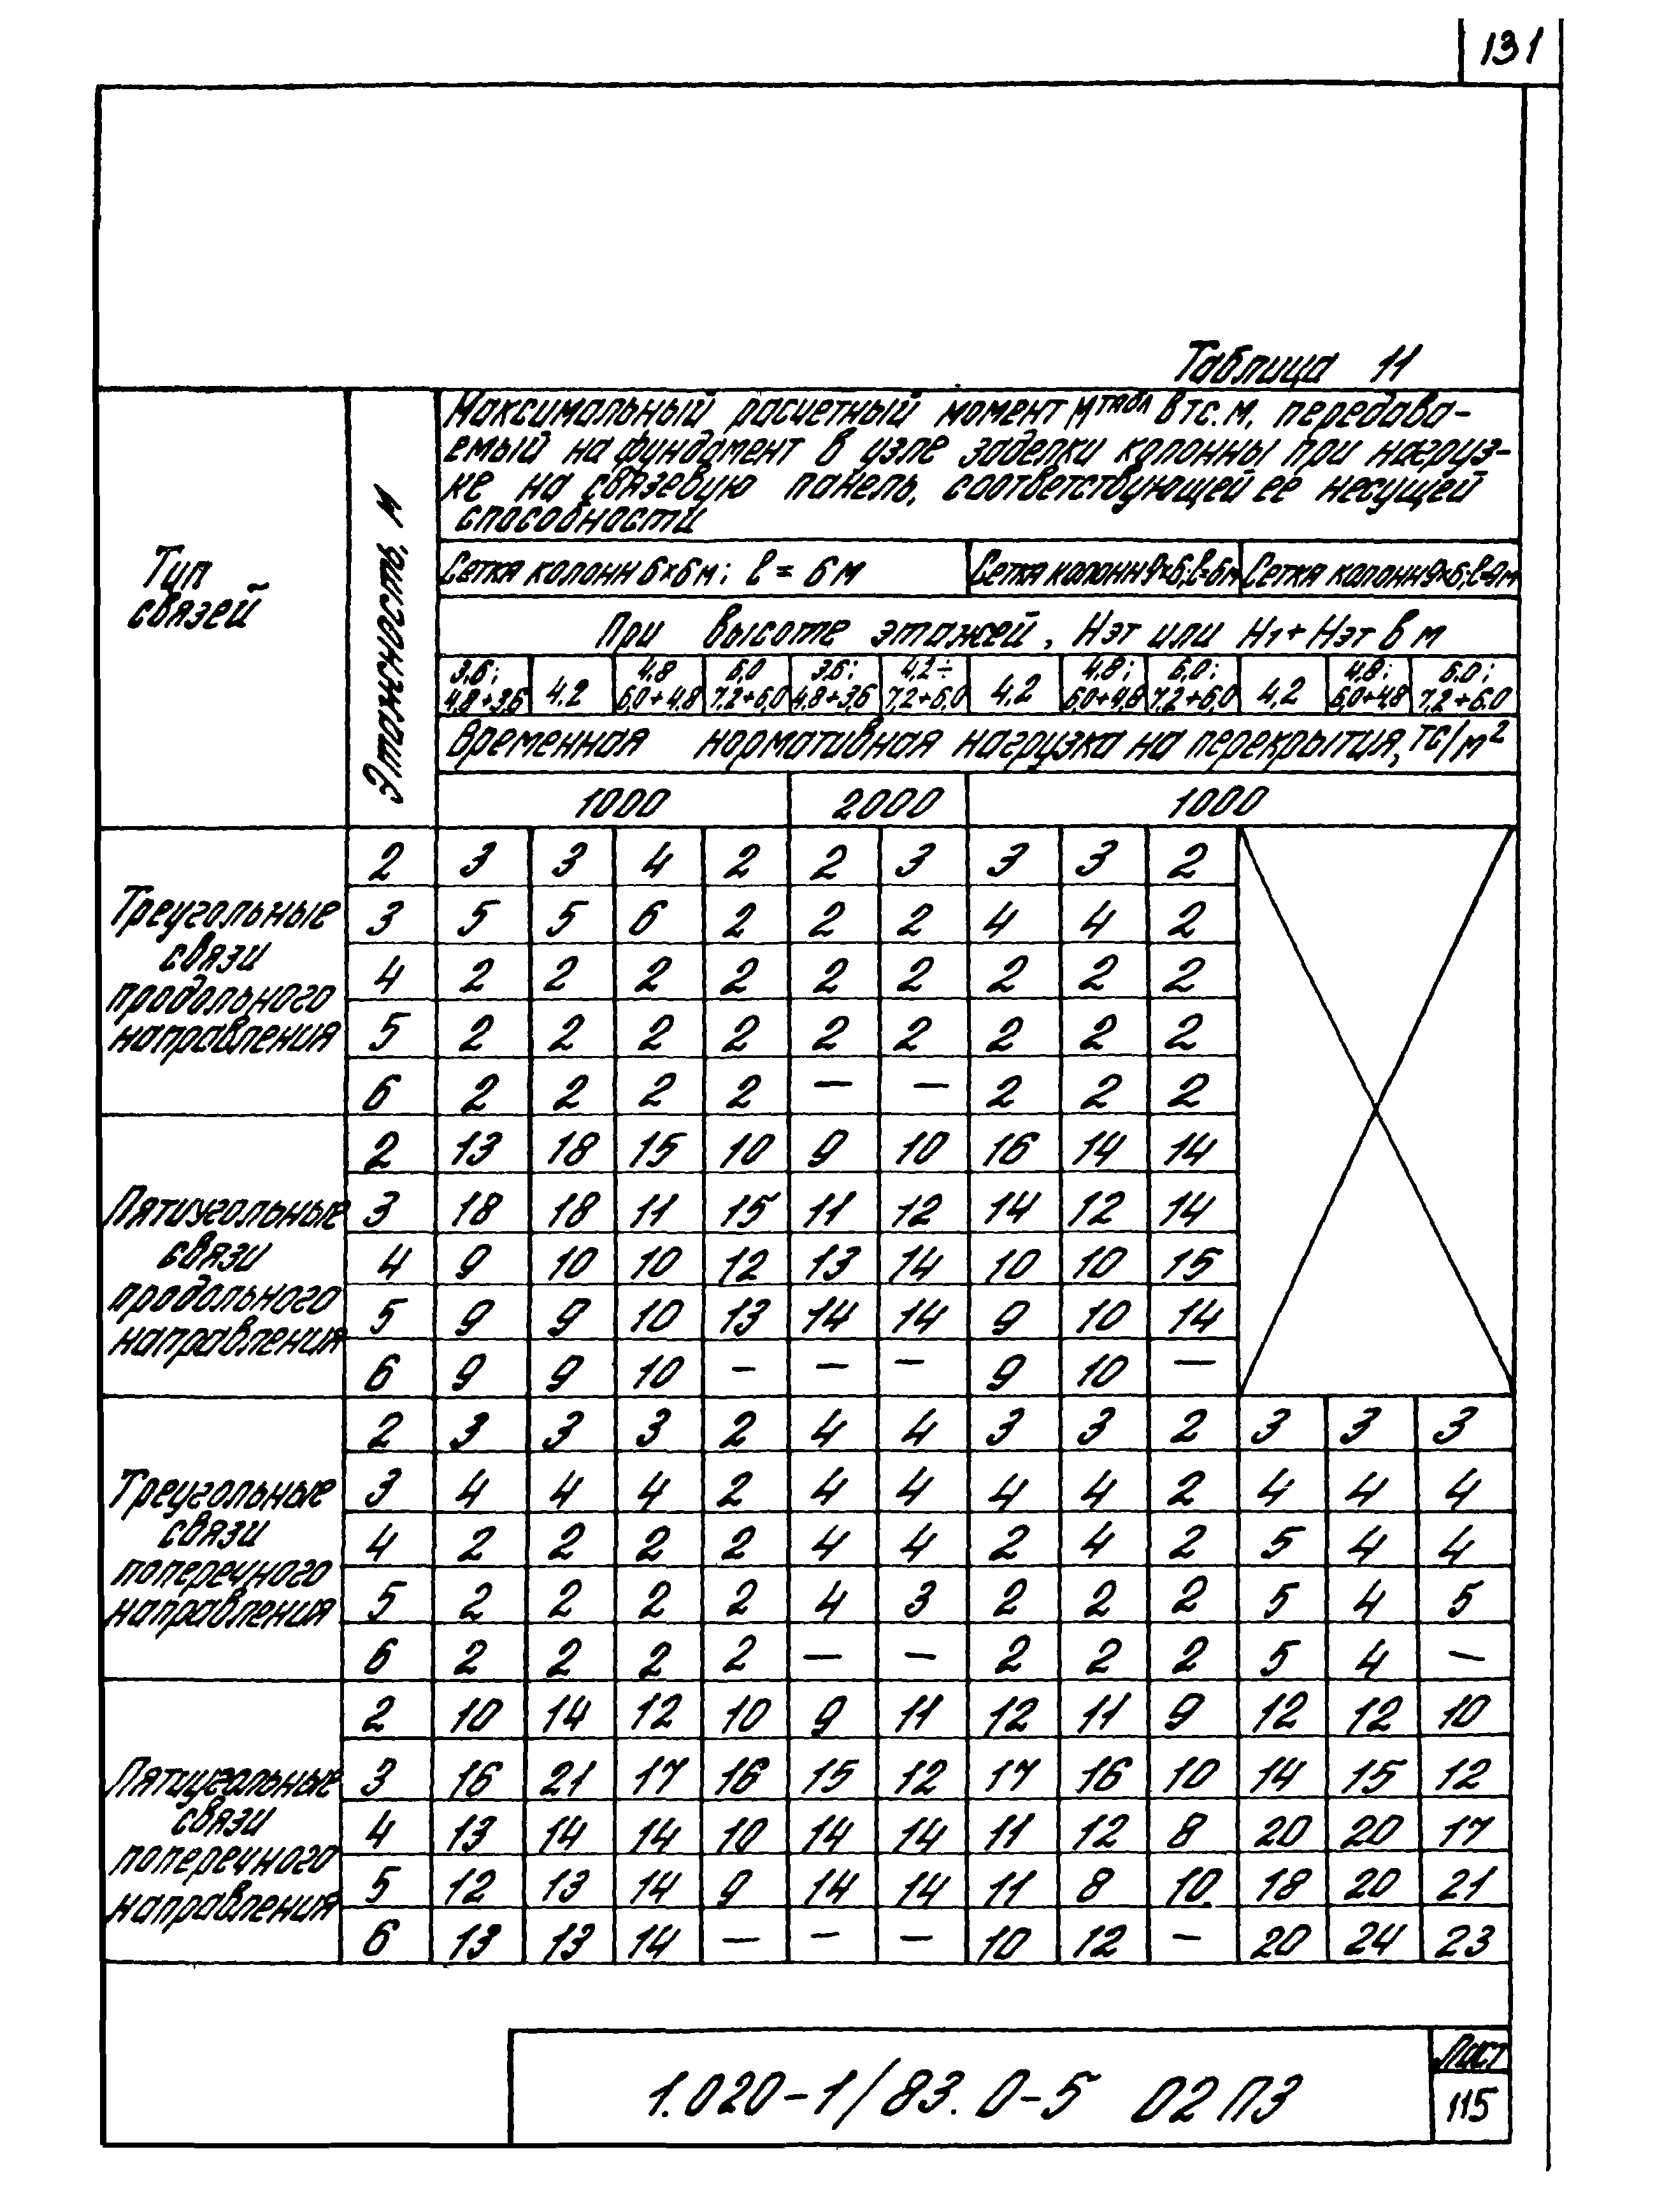 131
Таблица 11
Тип
связей
Этажность, М
Максимальный расчетный момент Мтабл в тс.м, передава-
емый на фундамент в узле заделки колонны при нагруз-
ке на связевую панель, соответствующей ее несущей
способности
Сетка колонн 6×6м; l = 6м Сетка колонн 9×6; l=6м Сетка колонн 9×6; l=9м
При высоте этажей, Нэт или Н1+Нэт в м
3,6; 4,8+3,6 4.2 4,8 6,0+4,8 6,0 7,2+6,0 3,6; 4,8+3,6 4,2÷ 7,2+6,0 4,2 4,8; 6,0+4,8 6,0; 7,2+6,0 4,2 4,8; 6,0+4,8 6,0; 7,2+6,0
Временная нормативная нагрузка на перекрытия, тс/м²
1000 2000 1000
Треугольные
связи
продольного
направления
2 3 3 4 2 2 3 3 3 2
3 5 5 6 2 2 2 4 4 2
4 2 2 2 2 2 2 2 2 2
5 2 2 2 2 2 2 2 2 2
6 2 2 2 2 — — 2 2 2
Пятиугольные
связи
продольного
направления
2 13 18 15 10 9 10 16 14 14
3 18 18 11 15 11 12 14 12 14
4 9 10 10 12 13 14 10 10 15
5 9 9 10 13 14 14 9 10 14
6 9 9 10 — — — 9 10 —
Треугольные
связи
поперечного
направления
2 3 3 3 2 4 4 3 3 2 3 3 3
3 4 4 4 2 4 4 4 4 2 4 4 4
4 2 2 2 2 4 4 2 4 2 5 4 4
5 2 2 2 2 4 3 2 2 2 5 4 5
6 2 2 2 2 — — 2 2 2 5 4 —
Пятиугальные
связи
поперечного
направления
2 10 14 12 10 9 11 12 11 9 12 12 10
3 16 21 17 16 15 12 17 16 10 14 15 12
4 13 14 14 10 14 14 11 12 8 20 20 17
5 12 13 14 9 14 14 11 8 10 18 20 21
6 13 13 14 — — — 10 12 — 20 24 23
1.020-1/83. 0-5 02ПЗ
Лист
115